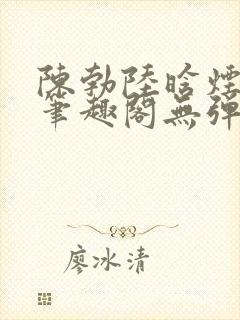 陳勃陸晗煙
筆趣閣無彈
廖冰清